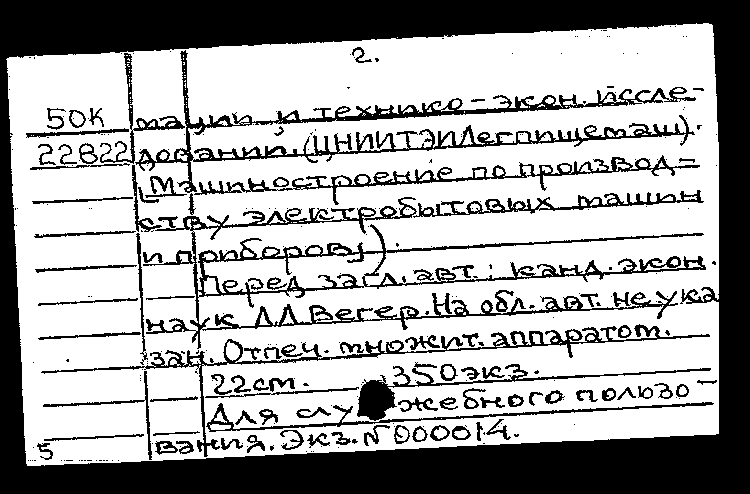 2.
50К мации и технико-экон. иссле-
22822 дований. (ЦНИИТЭИЛегпищемаш).
(Машиностроение по производ=
ству электробытовых машин
и приборов).
Перед загл. авт.: канд. экон.
наук Л.Л. Вегер. На обл. авт. не ука
зан. Отпеч. множит. аппаратом.
22 cm. 350 экз.
Для служебного пользо-
вания. Экз. N 000014.
5